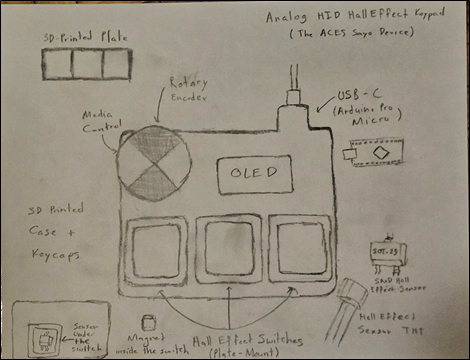 Analog HID Hall Effect Keypad
(The ACES Sayo Device)
3D-Printed Plate
Rotary
Encoder
USB-C
(Arduino Pro
Micro)
Media
Control
OLED
3D Printed
Case +
Keycaps
SOT-23
SMD Hall
Effect Sensor
Hall Effect
Sensor THT
Sensor
Under
the
switch
Magnet
inside the switch
Hall Effect Switches
(Plate-Mount)